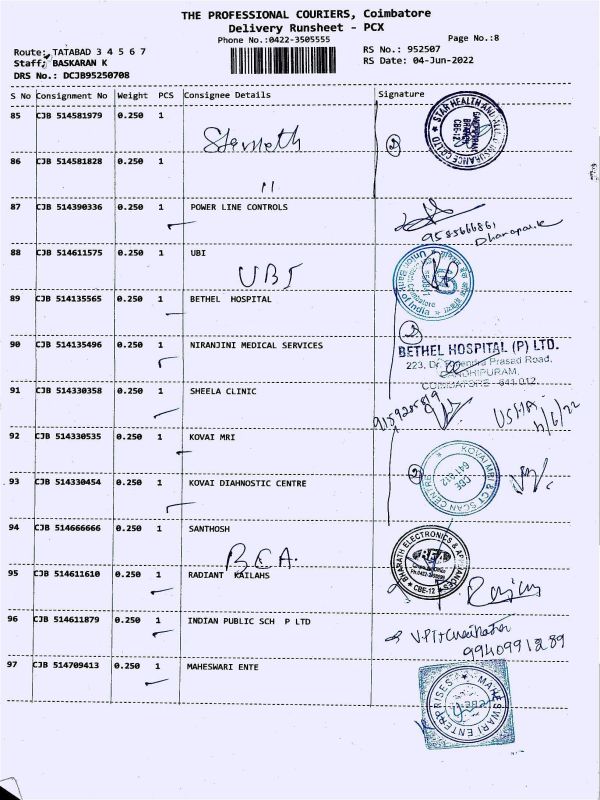 THE PROFESSIONAL COURIERS, Coimbatore
Delivery Runsheet - PCX
Phone No.:0422-3505555
Page No.:8
Route: TATABAD 3 4 5 6 7
RS No.: 952507
Staff: BASKARAN K
RS Date: 04-Jun-2022
DRS No.: DCJB95250708
S No Consignment No Weight PCS Consignee Details Signature
85 CJB 514581979 0.250 1
STAR HEALTH AND ALLIED INSURANCE CO LTD
GANDHIPURAM
BRANCH
CBE-12
2
86 CJB 514581828 0.250 1
11
87 CJB 514390336 0.250 1 POWER LINE CONTROLS
9585666861
88 CJB 514611575 0.250 1 UBI
UBI
Union Bank of India
89 CJB 514135565 0.250 1 BETHEL HOSPITAL
2
90 CJB 514135496 0.250 1 NIRANJINI MEDICAL SERVICES
BETHEL HOSPITAL (P) LTD.
223, Dr. Rajendra Prasad Road,
GANDHIPURAM,
COIMBATORE - 641 012.
91 CJB 514330358 0.250 1 SHEELA CLINIC
USHA
92 CJB 514330535 0.250 1 KOVAI MRI
KOVAI MRI & CT SCAN CENTRE
CBE
641 012
2
93 CJB 514330454 0.250 1 KOVAI DIAHNOSTIC CENTRE
94 CJB 514666666 0.250 1 SANTHOSH
B.C.A.
BHARATH ELECTRONICS & APPLIANCES
CBE-12
95 CJB 514611610 0.250 1 RADIANT KAILAHS
96 CJB 514611879 0.250 1 INDIAN PUBLIC SCH P LTD
97 CJB 514709413 0.250 1 MAHESWARI ENTE
MAHESWARI ENTERPRISES